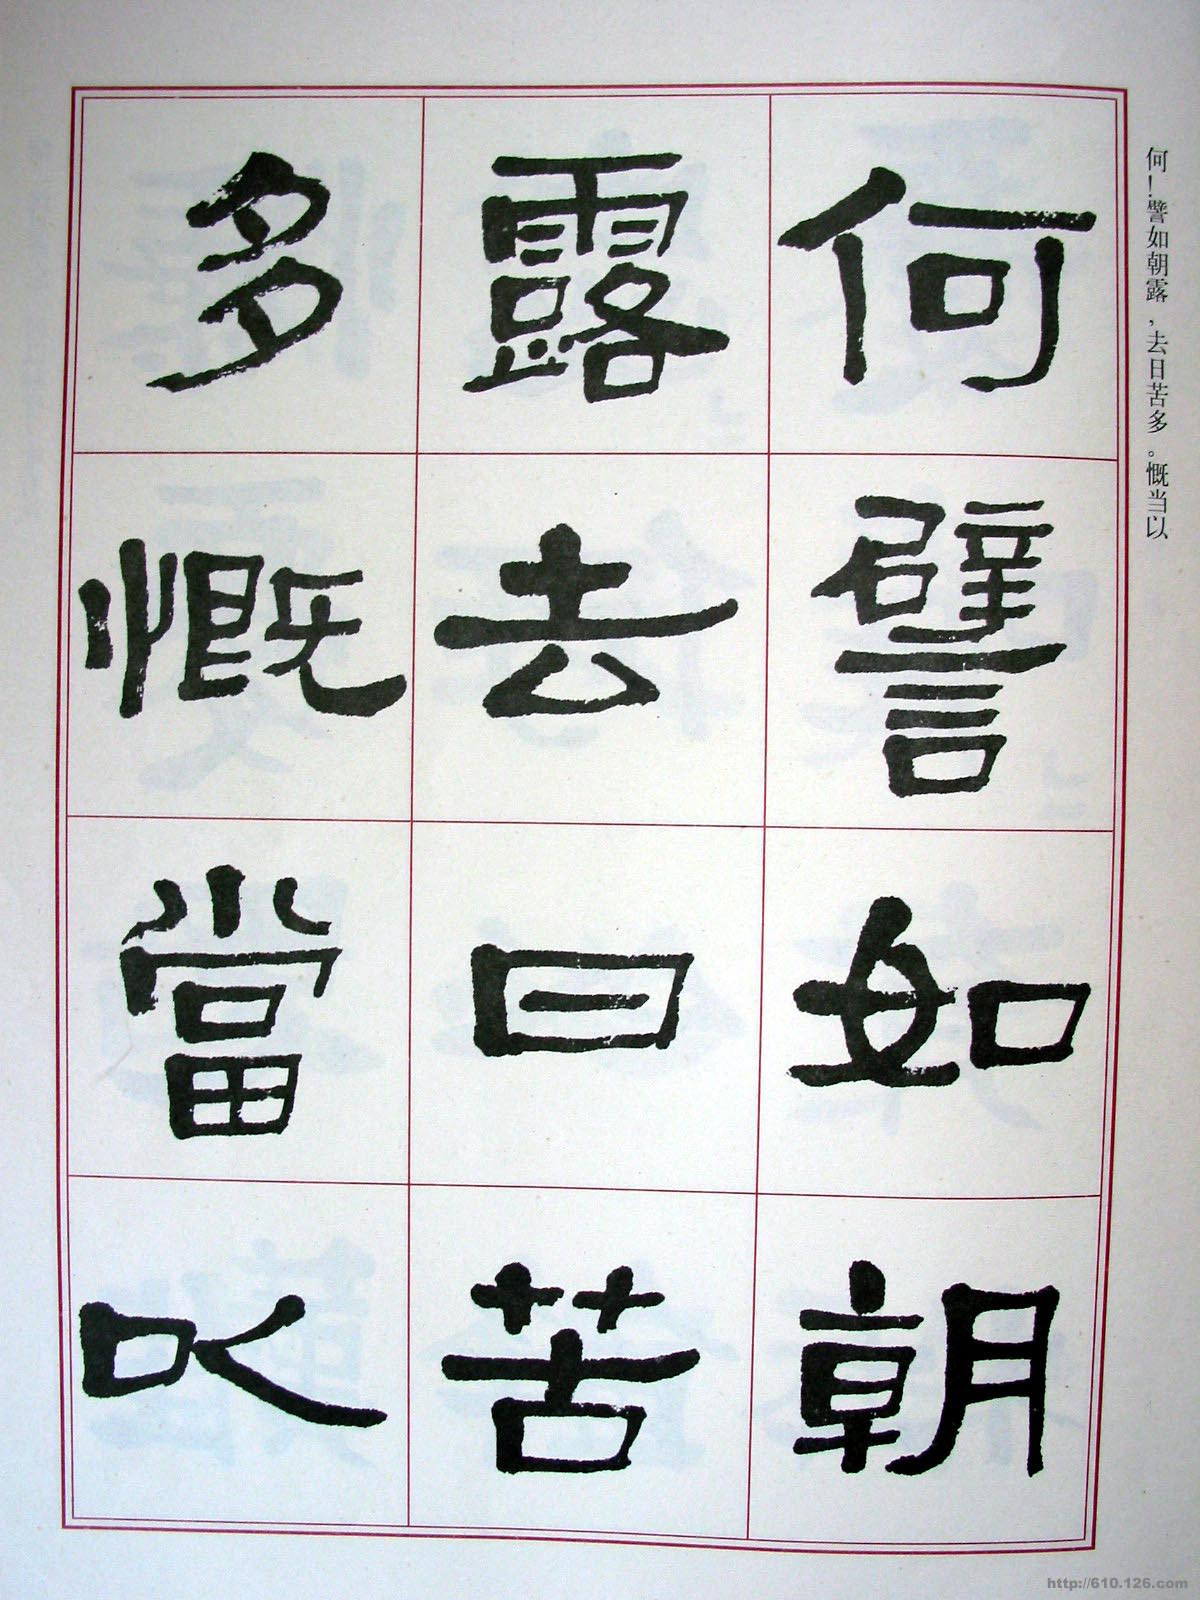 何！譬如朝露，去日苦多。慨当以
何譬如朝
露去日苦
多慨當以
http://610.126.com